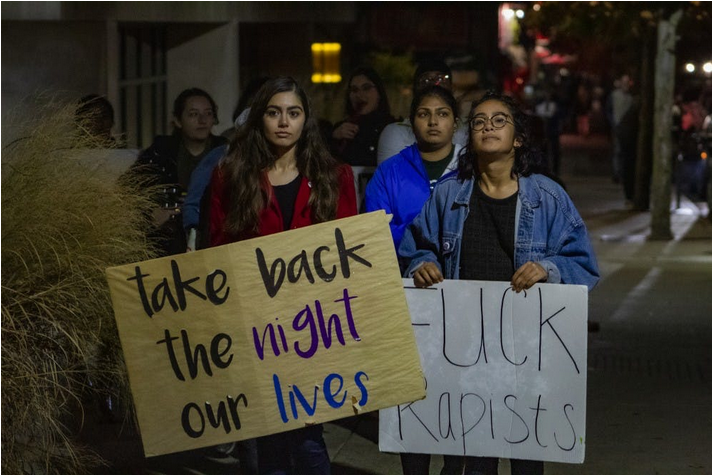 take back
the night
our lives
FUCK
Rapists